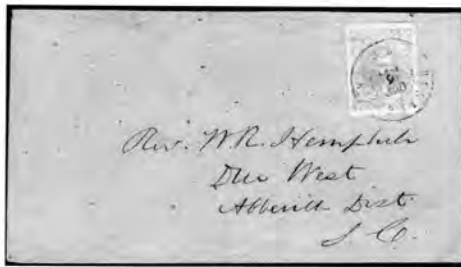 Rev. W. R. Hemphill
Due West
Abbevill Dist.
S. C.